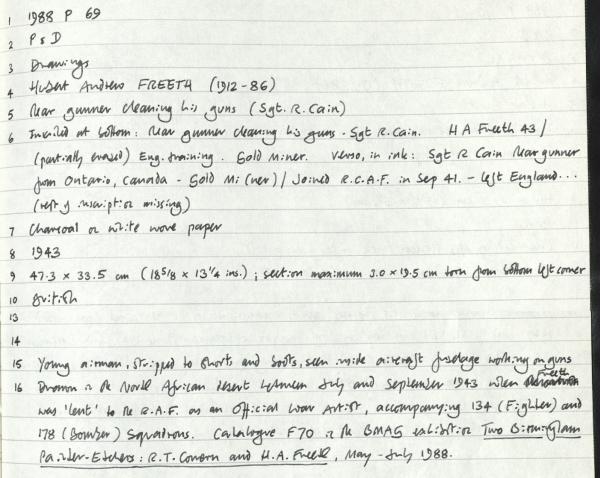 1 1988 P 69
2 P & D
3 Drawings
4 Hubert Andrew FREETH (1912-86)
5 Rear gunner cleaning his guns (Sgt. R. Cain)
6 Inscribed at bottom: Rear gunner cleaning his guns - Sgt R. Cain. H A Freeth 43 /
(partially erased) Eng. training. Gold Miner. Verso, in ink: Sgt R Cain Rear gunner
from Ontario, Canada - Gold Mi(ner) / Joined R.C.A.F. in Sep 41. - left England...
(rest of inscription missing)
7 Charcoal on white wove paper
8 1943
9 47.3 x 33.5 cm (18 5/8 x 13 1/4 ins.); section maximum 3.0 x 19.5 cm torn from bottom left corner
10 British
13
14
15 Young airman, stripped to shorts and boots, seen inside aircraft fuselage working on guns
16 Drawn in the North African desert between July and September 1943 when Freeth
was 'lent' to the R.A.F. as an Official War Artist, accompanying 134 (Fighter) and
178 (Bomber) Squadrons. Catalogue F70 in the BMAG exhibition Two Birmingham
Painter-Etchers: R.T. Cowern and H.A. Freeth, May - July 1988.